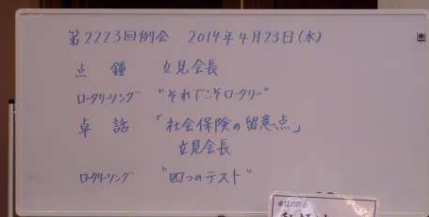 第2223回例会 2014年4月23日(水)
点鐘 立見会長
ロータリーソング "それでこそロータリー"
卓話 「社会保険の留意点」
立見会長
ロータリーソング "四つのテスト"